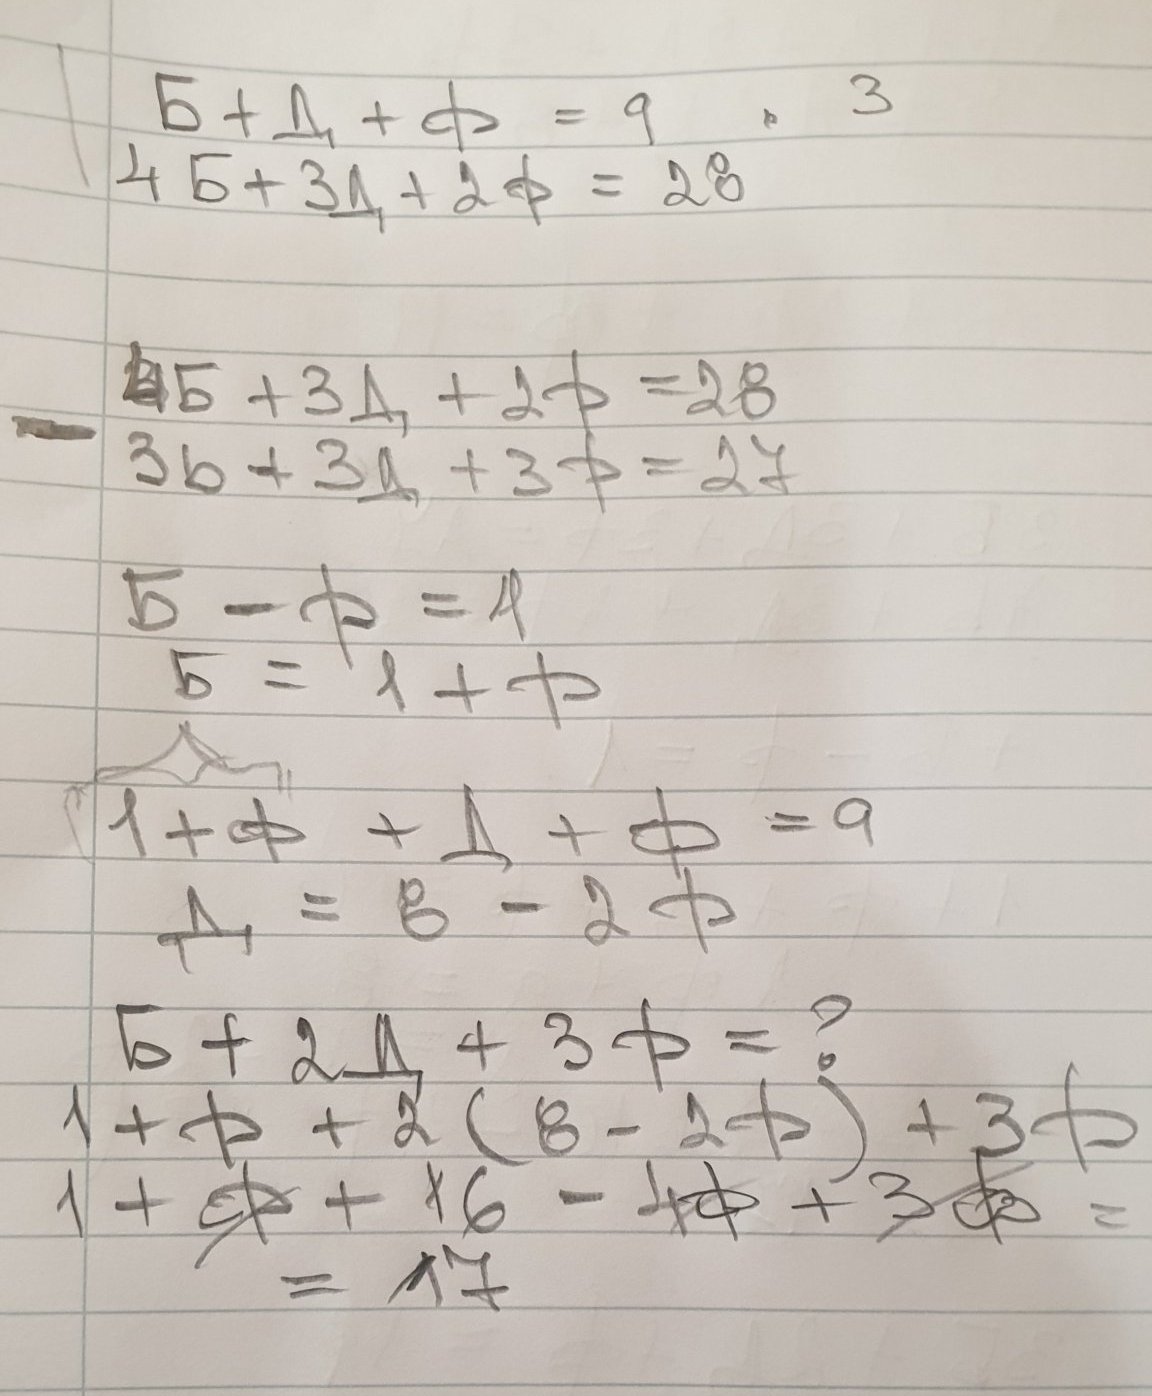 Б + Д + ф = 9 · 3
4Б + 3Д + 2ф = 28
4Б + 3Д + 2ф = 28
-
3Б + 3Д + 3ф = 27
Б - ф = 1
Б = 1 + ф
1 + ф + Д + ф = 9
Д = 8 - 2ф
Б + 2Д + 3ф = ?
1 + ф + 2(8 - 2ф) + 3ф
1 + ф + 16 - 4ф + 3ф =
= 17